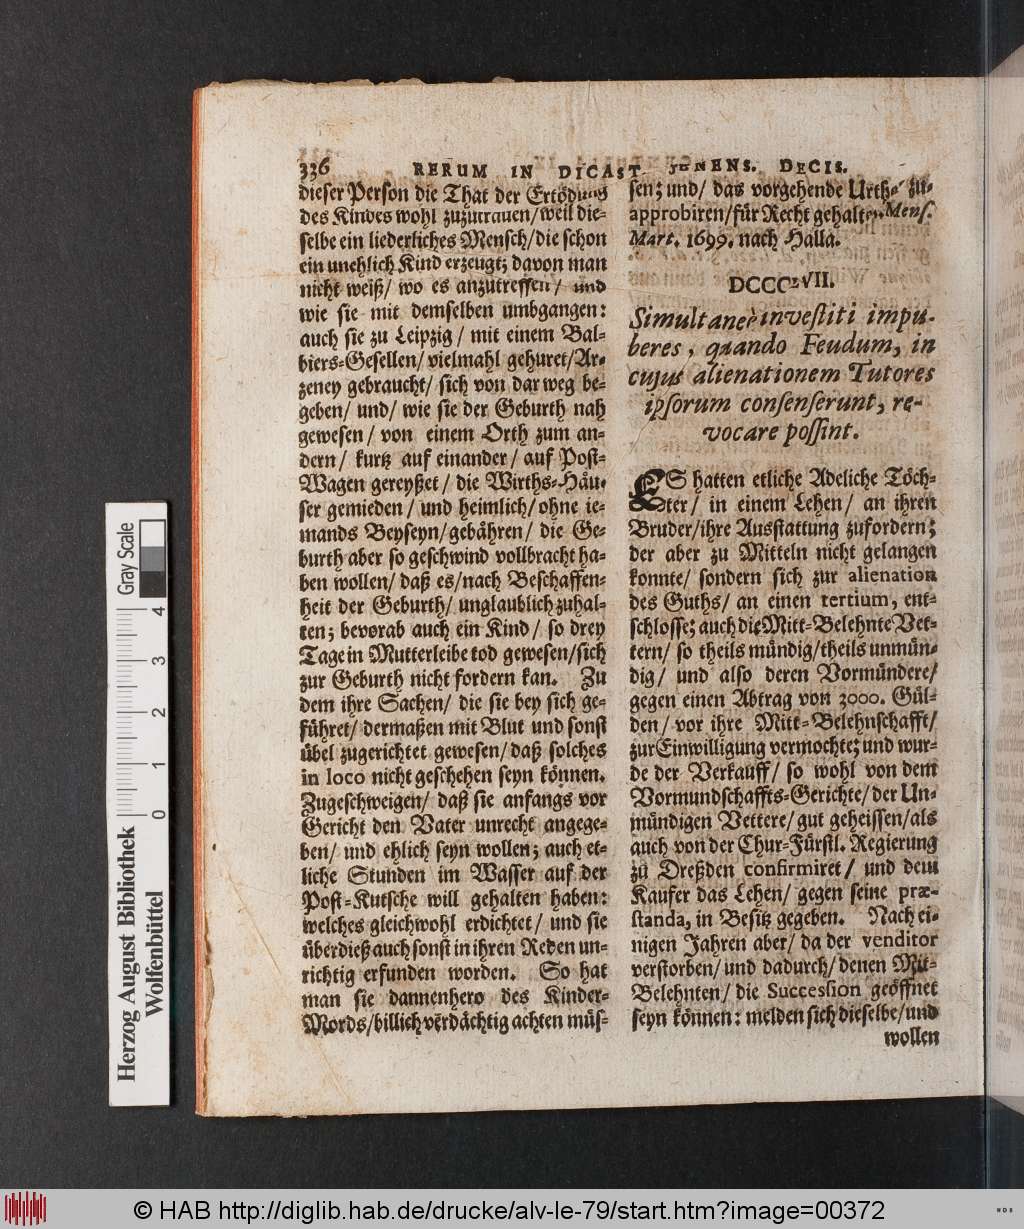 336 RERUM IN DICAST. JENENS. DECIS.
dieser Person die That der Ertödung
des Kindes wohl zuzutrauen/weil die-
selbe ein liederliches Mensch/die schon
ein unehlich Kind erzeugt; davon man
nicht weiß/ wo es anzutreffen/ und
wie sie mit demselben umbgangen:
auch sie zu Leipzig/ mit einem Bal-
biers-Gesellen/ vielmahl gehuret/Ar-
zeney gebraucht/ sich von dar weg be-
geben/ und/ wie sie der Geburth nah
gewesen/ von einem Orth zum an-
dern/ kurtz auf einander/ auf Post-
Wagen gereyßet/ die Wirths-Häu-
ser gemieden/ und heimlich/ohne ie-
mands Beyseyn/gebähren/ die Ge-
burth aber so geschwind vollbracht ha-
ben wollen/ daß es/nach Beschaffen-
heit der Geburth/ unglaublich zuhal-
ten; bevorab auch ein Kind/ so drey
Tage in Mutterleibe tod gewesen/sich
zur Geburth nicht fordern kan. Zu
dem ihre Sachen/ die sie bey sich ge-
führet/ dermaßen mit Blut und sonst
übel zugerichtet gewesen/ daß solches
in loco nicht geschehen seyn können.
Zugeschweigen/ daß sie anfangs vor
Gericht den Vater unrecht angege-
ben/ und ehlich seyn wollen; auch et-
liche Stunden im Wasser auf der
Post-Kutsche will gehalten haben:
welches gleichwohl erdichtet/ und sie
überdieß auch sonst in ihren Reden un-
richtig erfunden worden. So hat
man sie dannenhero des Kinder-
Mords/billich verdächtig achten müs-
sen; und/ das vorgehende Urth. zu-
approbiren/für Recht gehalten. Mens.
Mart. 1699. nach Halla.
DCCCLVII.
Simultaneè investiti impu-
beres, quando Feudum, in
cujus alienationem Tutores
ipsorum consenserunt, re-
vocare possint.
ES hatten etliche Adeliche Töch-
ter/ in einem Lehen/ an ihren
Bruder/ihre Ausstattung zufordern;
der aber zu Mitteln nicht gelangen
konnte/ sondern sich zur alienation
des Guths/ an einen tertium, ent-
schlosse; auch die Mitt-Belehnte Vet-
tern/ so theils mündig/theils unmün-
dig/ und also deren Vormündere/
gegen einen Abtrag von 3000. Gül-
den/ vor ihre Mitt-Belehnschafft/
zur Einwilligung vermochte; und wur-
de der Verkauff/ so wohl von dem
Vormundschaffts-Gerichte/ der Un-
mündigen Vettere/ gut geheissen/als
auch von der Chur-Fürstl. Regierung
zu Dreßden confirmiret/ und dem
Kaufer das Lehen/ gegen seine præ-
standa, in Besitz gegeben. Nach ei-
nigen Jahren aber/ da der venditor
verstorben/ und dadurch/ denen Mit-
Belehnten/ die Succession geöffnet
seyn können: melden sich dieselbe/und
wollen
Herzog August Bibliothek
Wolfenbüttel
0 1 2 3 4
Gray Scale
© HAB http://diglib.hab.de/drucke/alv-le-79/start.htm?image=00372